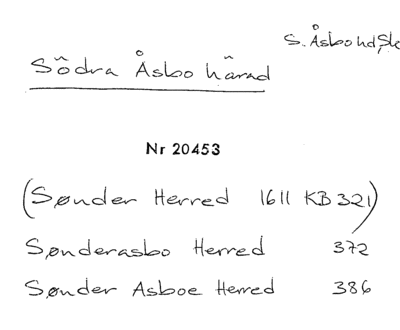 S. Åsbo hd, Sk
Södra Åsbo härad
Nr 20453
(Sønder Herred 1611 KB 321)
Sønderasbo Herred 372
Sønder Asboe Herred 386